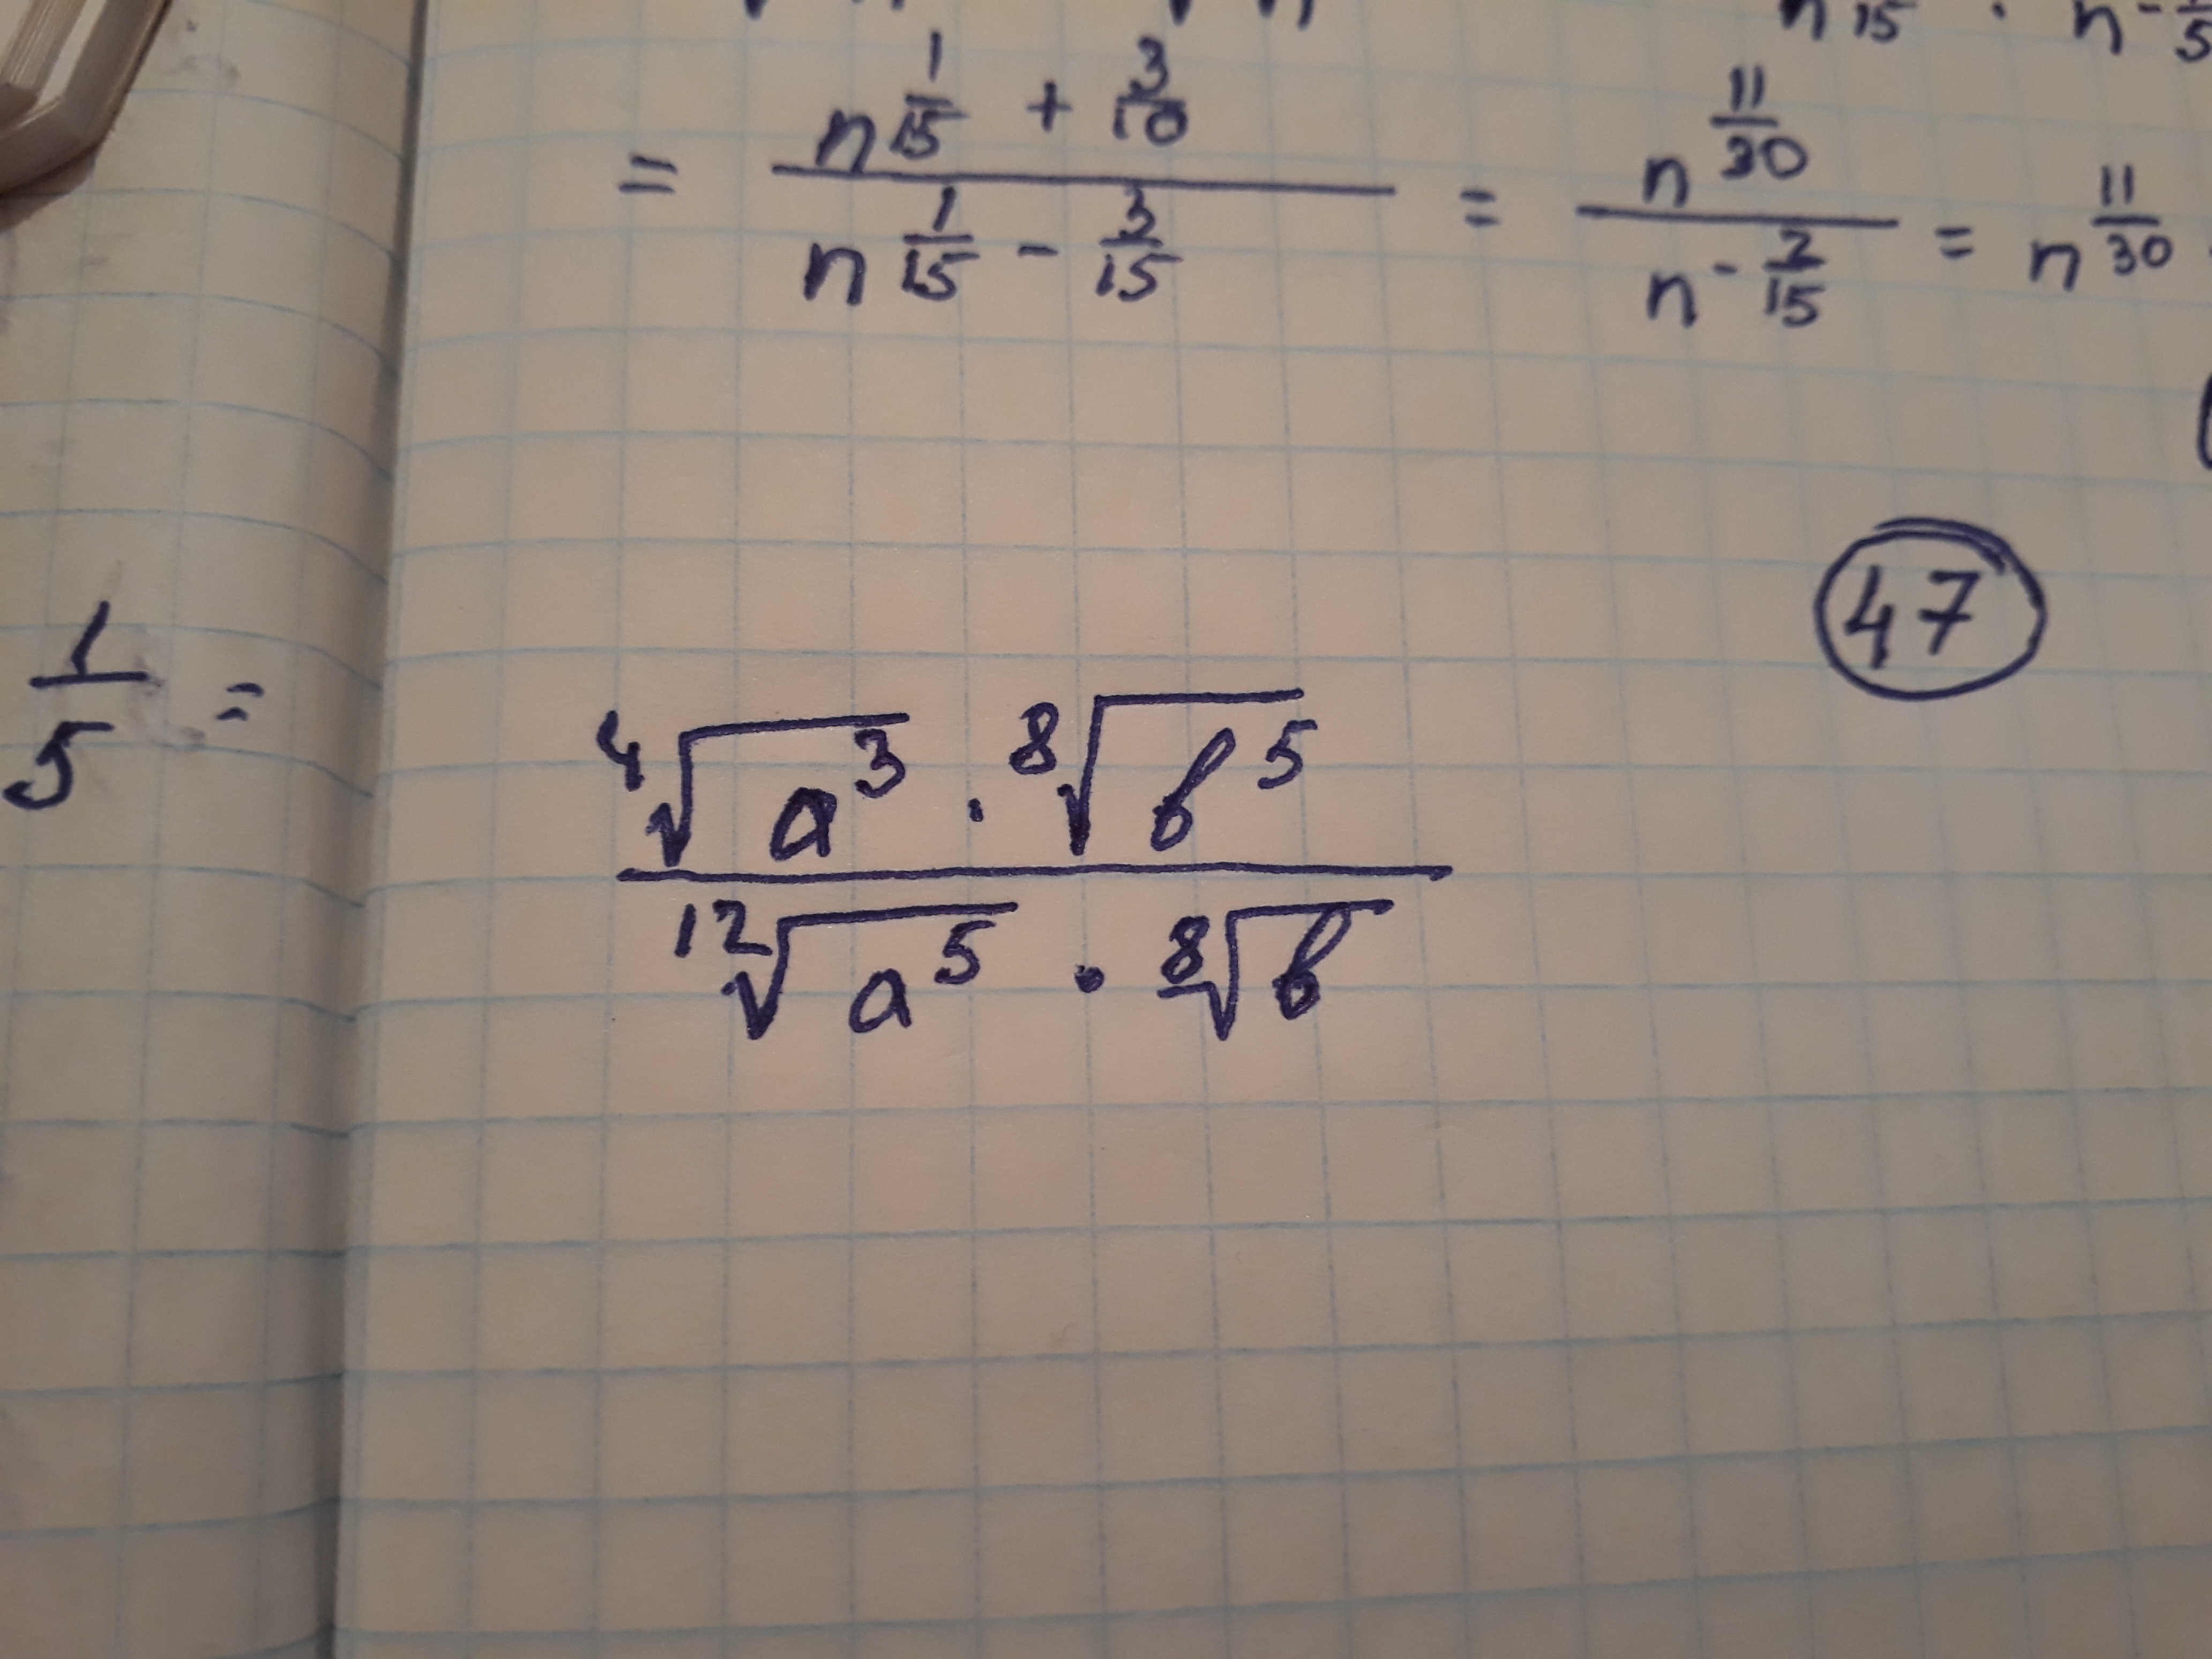 n^(1/15 + 3/10) / n^(1/15 - 3/15) = n^(11/30) / n^(-2/15) = n^(11/30)
47
1/5 =
⁴√(a³) · ⁸√(b⁵) / ¹²√(a⁵) · ⁸√b